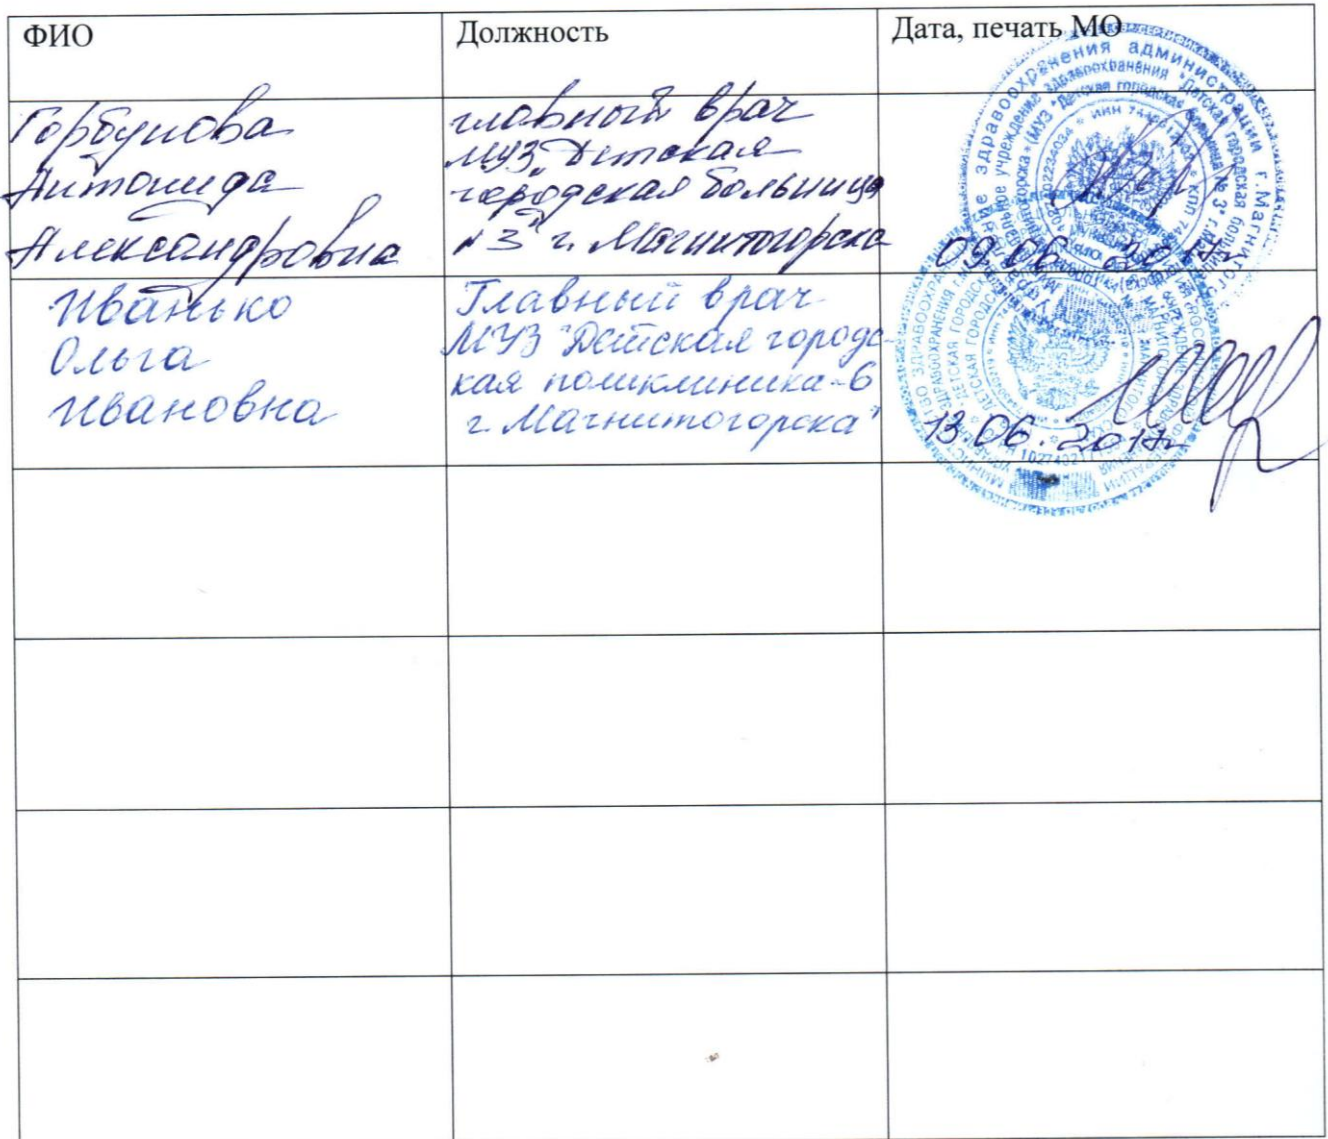 ФИО
Должность
Дата, печать МО
Горбунова
Антонида
Александровна
главный врач
МУЗ "Детская
городская больница
№3" г. Магнитогорска
09.06.2017г
Иванько
Ольга
Ивановна
Главный врач
МУЗ "Детская городс-
кая поликлиника-6
г. Магнитогорска"
13.06.2017г